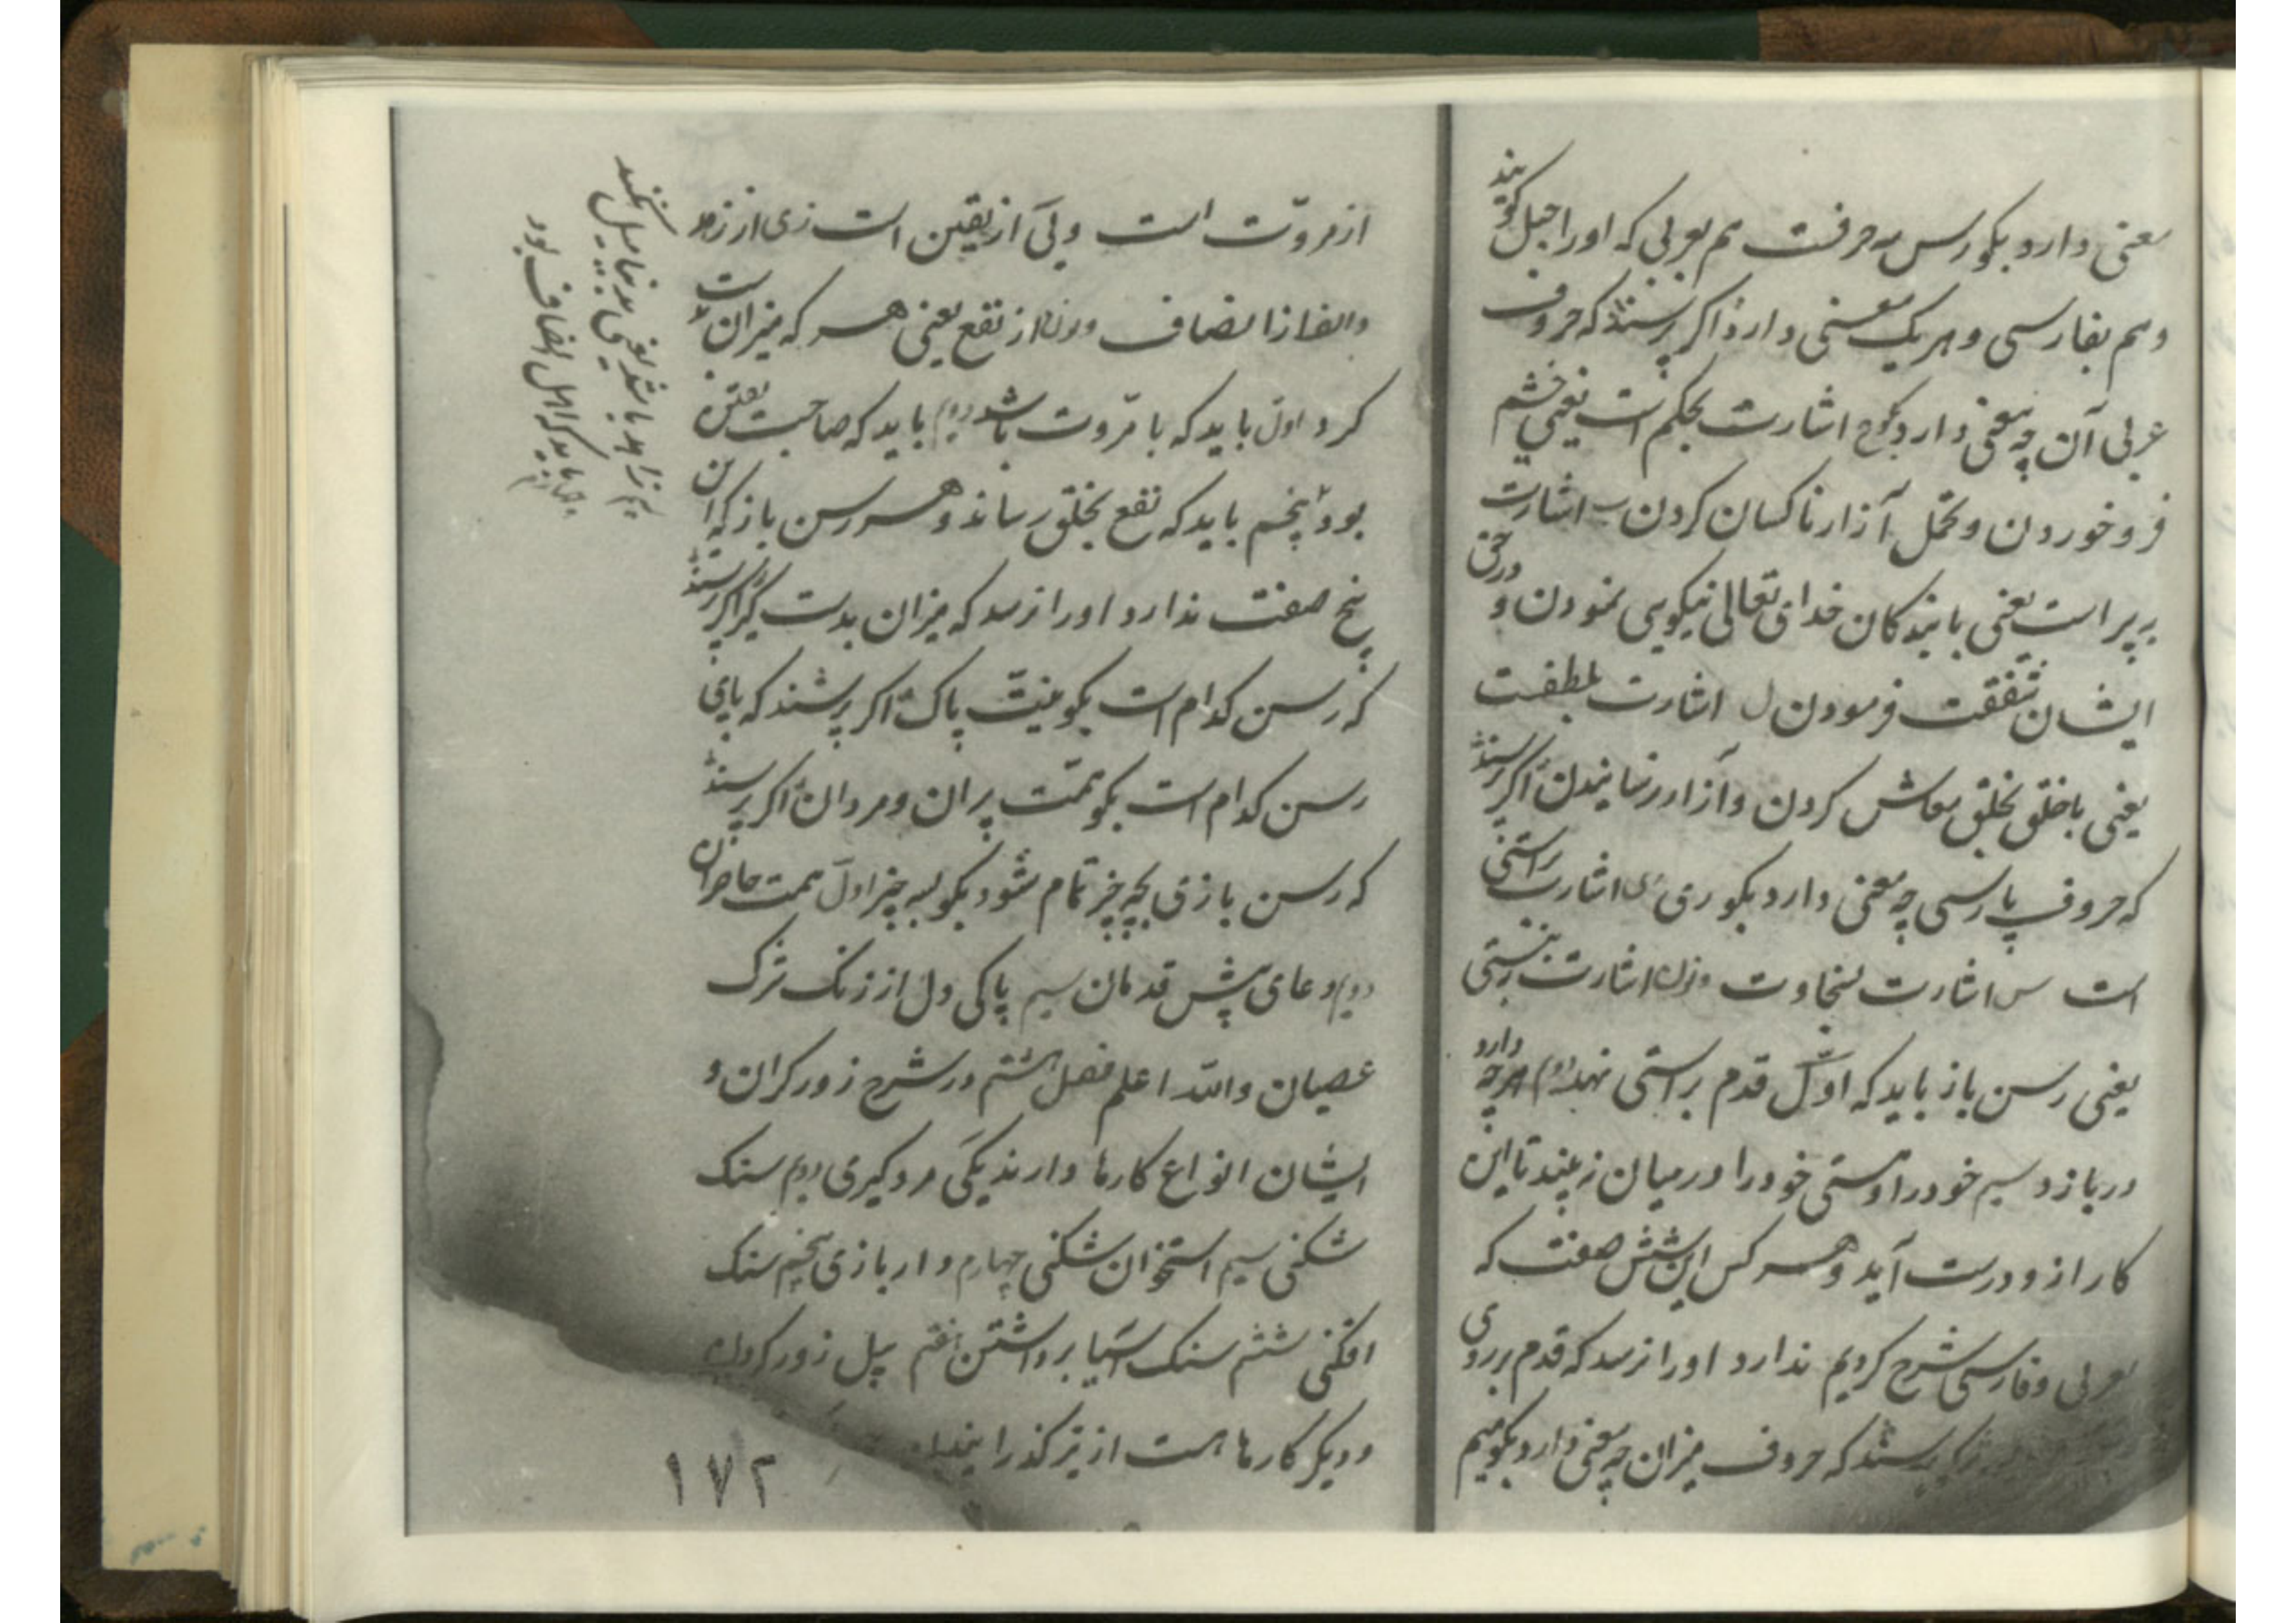 معنی دارد بکو رسن سه حرفست هم بعربی که او را حبل کویند
و هم بفارسی و هر یک معنی دارد اکر پرسند که حروف
عربی آن چه معنی دارد بکو ح اشارت بحکم است یعنی خشم
فرو خوردن و تحمل آزار ناکسان کردن ب اشارت
ببر است یعنی با بندکان خدای تعالی نیکویی نمودن و در حق
ایشان شفقت فرمودن ل اشارت بلطفست
یعنی با خلق بخلق معاش کردن و آزار نرسانیدن اکر پرسند
که حروف پارسی چه معنی دارد بکو ری اشارت براستی
است س اشارت بسخاوت و نون اشارت به نیستی
یعنی رسن باز باید که اول قدم براستی نهد دوم هر چه دارد
دربازد سیم خود را و هستی خود را در میان نه بیند تا این
کار ازو درست آید و هر کس این شش صفت که
بعربی و فارسی شرح کردیم ندارد او را نرسد که قدم بر روی
پرسند که حروف میزان چه معنی دارد بکو میم
از مروّت است و یی از یقین است زی از زهد
و الف از انصاف و نون از نفع یعنی هر که میزان بدست
کرد اول باید که با مروّت باشد دوم باید که صاحب یقین
بود پنجم باید که نفع بخلق رساند و هر رسن باز که این
پنج صفت ندارد او را نرسد که میزان بدست کیرد اکر پرسند
که رسن کدام است بکو نیت پاک اکر پرسند که پای
رسن کدام است بکو همّت پیران و مردان اکر پرسند
که رسن بازی بچه چیز تمام شود بکو بسه چیز اول همت حاضران
دوم دعای پیش قدمان سیم پاکی دل از زنک ترک
عصیان والله اعلم فصل هشتم در شرح زورکران و
ایشان انواع کارها دارند یکی مرد کیری دوم سنک
شکنی سیم استخوان شکنی چهارم دار بازی پنجم سنک
افکنی ششم سنک آسیا برداشتن هفتم پیل زور کردن
و دیکر کارها هست از نیز کذرانیدن
سیم زاهد باشد یعنی بدنیا میل نکند
چهارم باید که اهل انصاف بود
۱۷۲